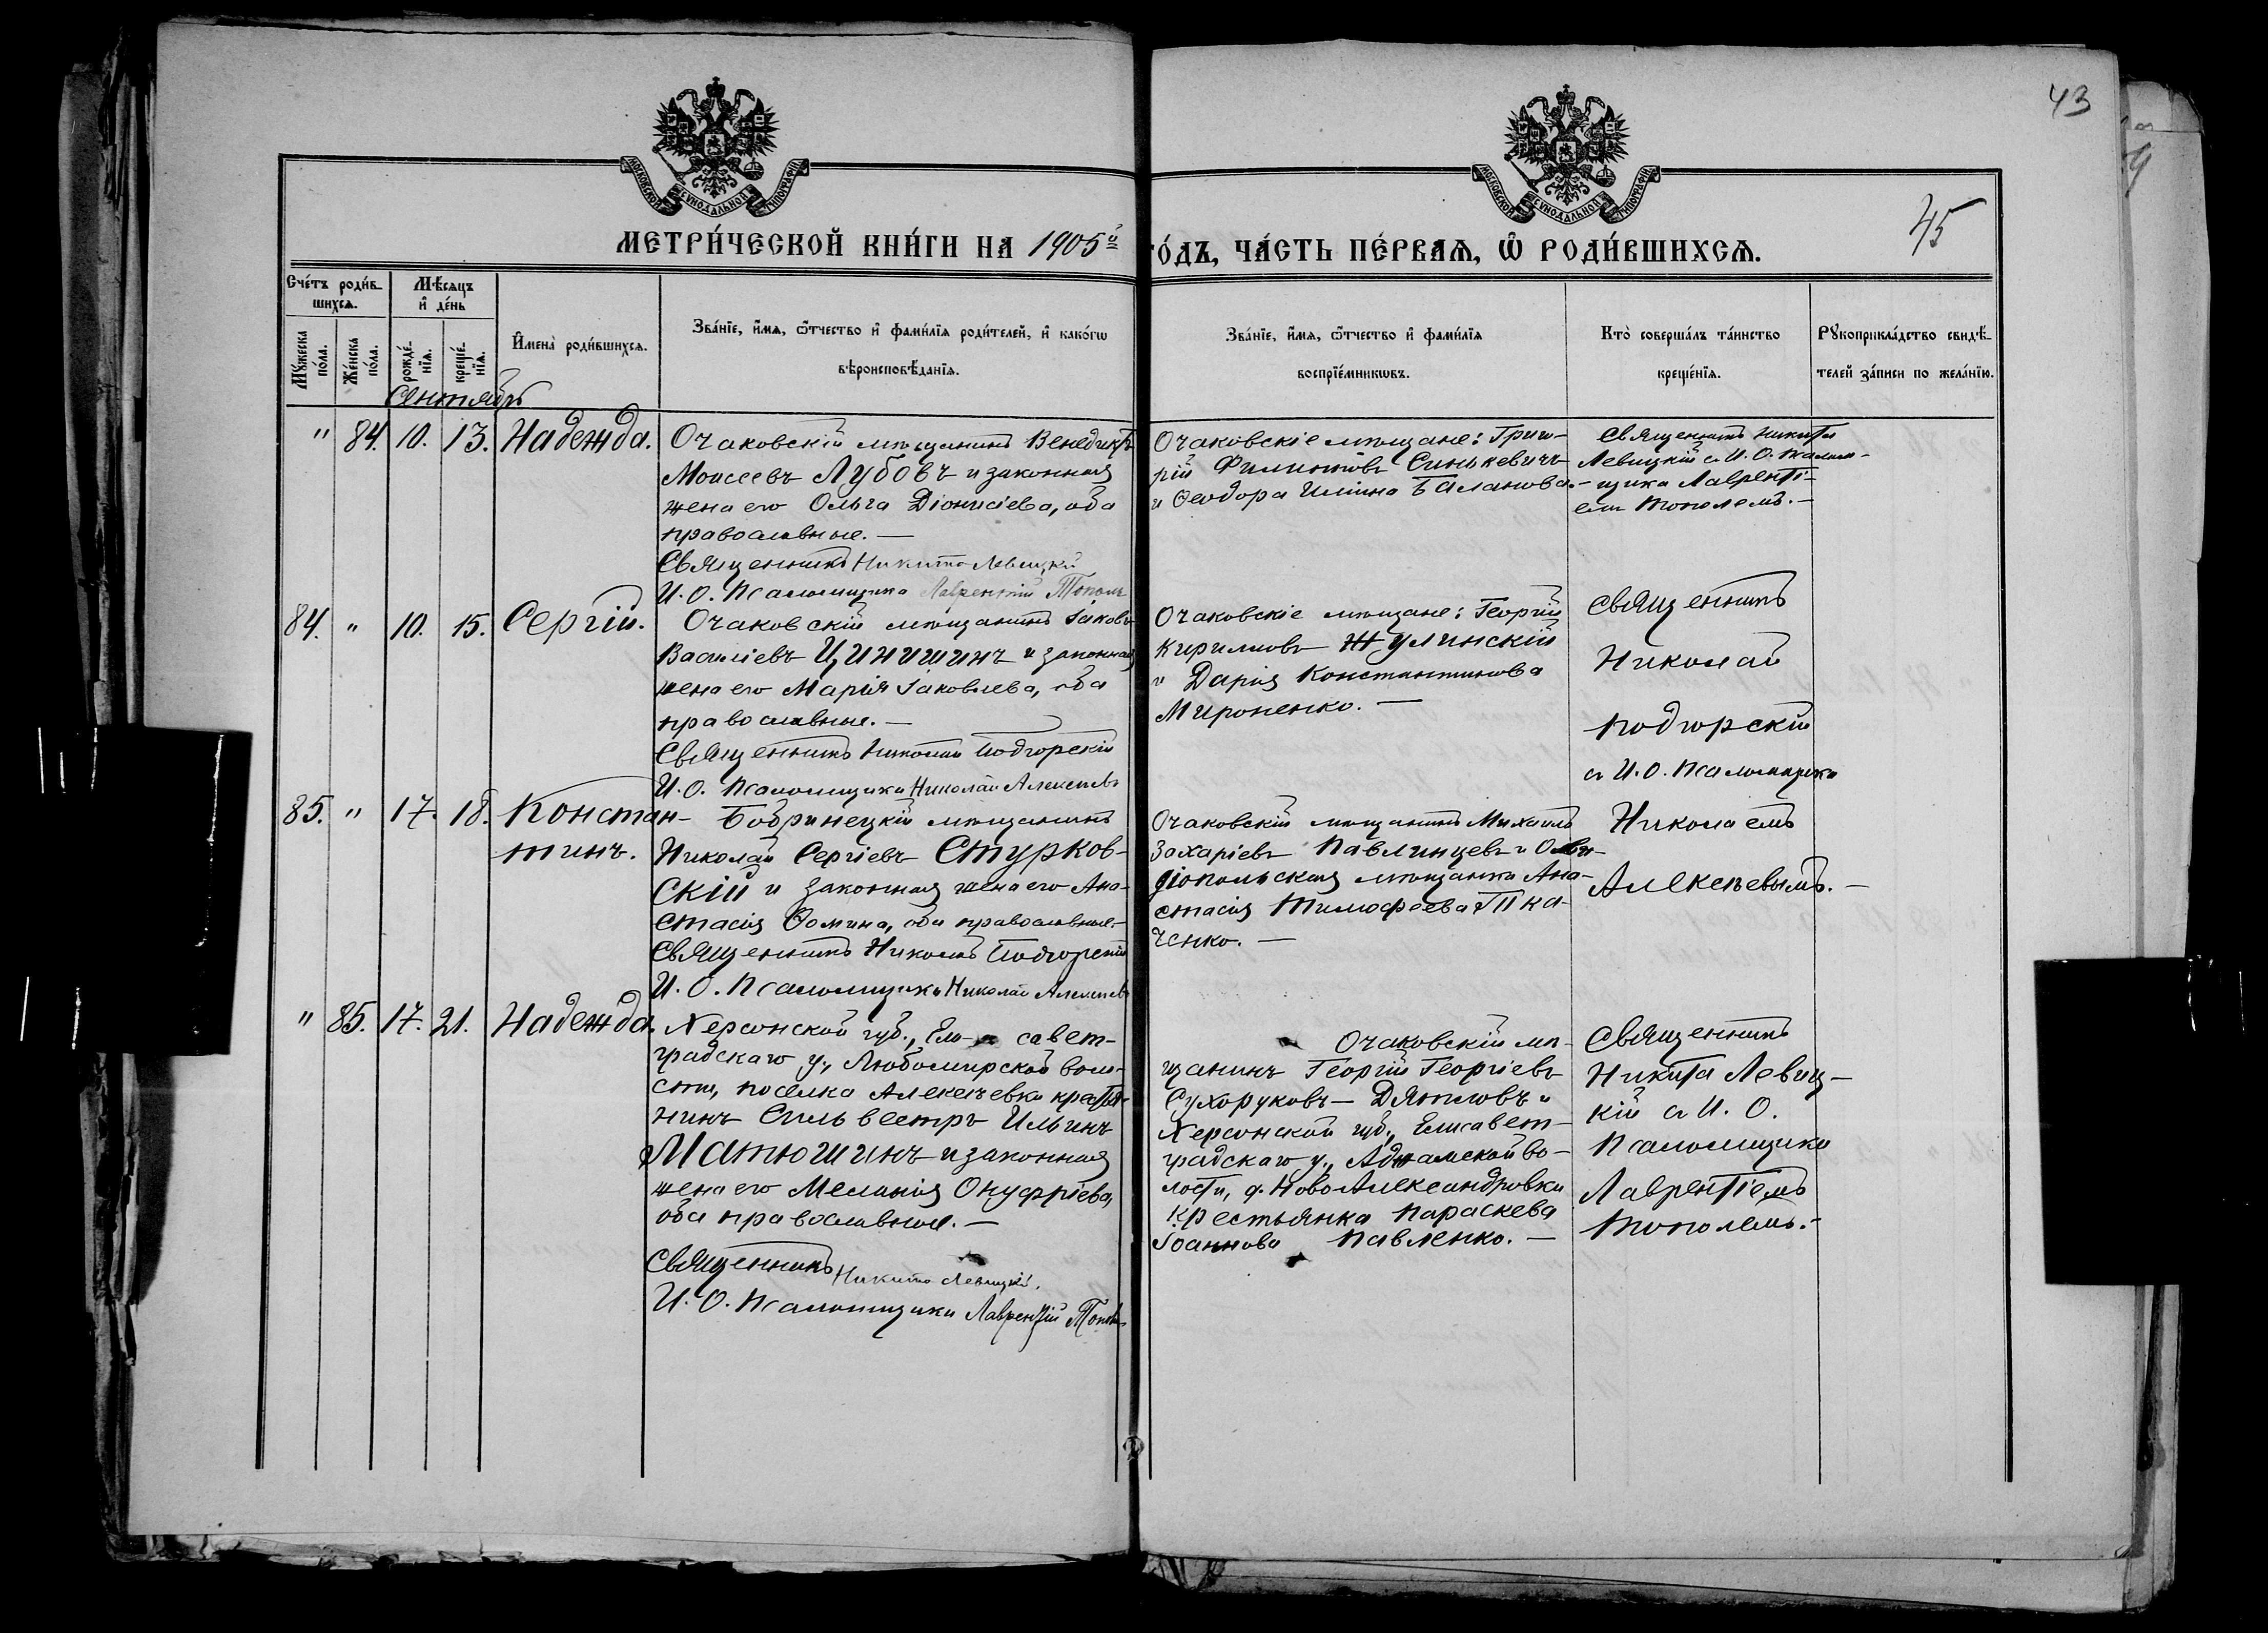 43
45
МОСКОВСКОЙ СѴНОДАЛЬНОЙ ТИПОГРАФІИ
МОСКОВСКОЙ СѴНОДАЛЬНОЙ ТИПОГРАФІИ
МЕТРИ́ЧЕСКОЙ КНИ́ГИ НА 1905й ГО́ДЪ, ЧА́СТЬ ПЕ́РВАѦ, Ѡ҆ РОДИ́ВШИХСѦ.
Сче́тъ роди́в-
шихсѧ.
Мѣ́сѧцъ
и҆ де́нь
Мꙋ́жеска по́ла.
Же́нска по́ла.
рожде́-
нїѧ.
креще́-
нїѧ.
И҆мена̀ роди́вшихсѧ.
Зва́нїе, и҆́мѧ, ѻ҆́тчество и҆ фами́лїѧ роди́телей, и҆ како́гѡ
вѣроисповѣ́данїѧ.
Зва́нїе, и҆́мѧ, ѻ҆́тчество и҆ фами́лїѧ
воспрїе́мникѡвъ.
Кто̀ соверша́лъ та́инство
креще́нїѧ.
Рꙋкоприкла́дство свидѣ́-
телей за́писи по жела́нїю.
Сентябрь
" 84. 10. 13. Надежда.
Очаковскій мѣщанинъ Венедиктъ
Моисеевъ Лубовъ и законная
жена его Ольга Діонисіева, оба
православные. —
Священникъ Никита Левицкій
И. О. Псаломщика Лаврентій Тополь
Очаковскіе мѣщане: Григо-
рій Филиповъ Синькевичъ
и Ѳеодора Иліина Баланова. —
Священникъ Никита
Левицкій съ И. О. Псалом-
щика Лавренті-
емъ Тополемъ. —
84. " 10. 15. Сергій.
Очаковскій мѣщанинъ Іаковъ
Василіевъ Цинишинъ и законная
жена его Марія Іаковлева, оба
православные. —
Священникъ Николай Подгорскій
И. О. Псаломщика Николай Алексѣевъ
Очаковскіе мѣщане: Георгій
Кирилловъ Жулинскій
и Дарія Константинова
Мироненко. —
Священникъ
Николай
Подгорскій
съ И. О. Псаломщика
Николаемъ
Алексѣевымъ. —
85. " 17. 18. Констан-
тинъ.
Бобринецкій мѣщанинъ
Николай Сергіевъ Стурков-
скій и законная жена его Ана-
стасія Ѳомина, оба православные. —
Священникъ Николай Подгорскій
И. О. Псаломщика Николай Алексѣевъ
Очаковскій мѣщанинъ Михаилъ
Захаріевъ Павлинцевъ и Ови-
діопольская мѣщанка Ана-
стасія Тимофеева Тка-
ченко. —
" 85. 17. 21. Надежда.
Херсонской губ., Ели- савет-
градскаго у., Любомирской воло-
сти, поселка Алексѣевки крестья-
нинъ Сильвестръ Ильинъ
Матюшинъ и законная
жена его Меланія Онуфріева,
оба православные. —
Священникъ Никита Левицкій.
И. О. Псаломщика Лаврентій Тополь
Очаковскій мѣ-
щанинъ Георгій Георгіевъ
Сухоруковъ — Дятловъ и
Херсонской губ., Елисавет-
градскаго у., Аджамской во-
лости, д. НовоАлександровки
крестьянка Параскева
Іоаннова Павленко. —
Священникъ
Никита Левиц-
кій съ И. О.
Псаломщика
Лаврентіемъ
Тополемъ. —